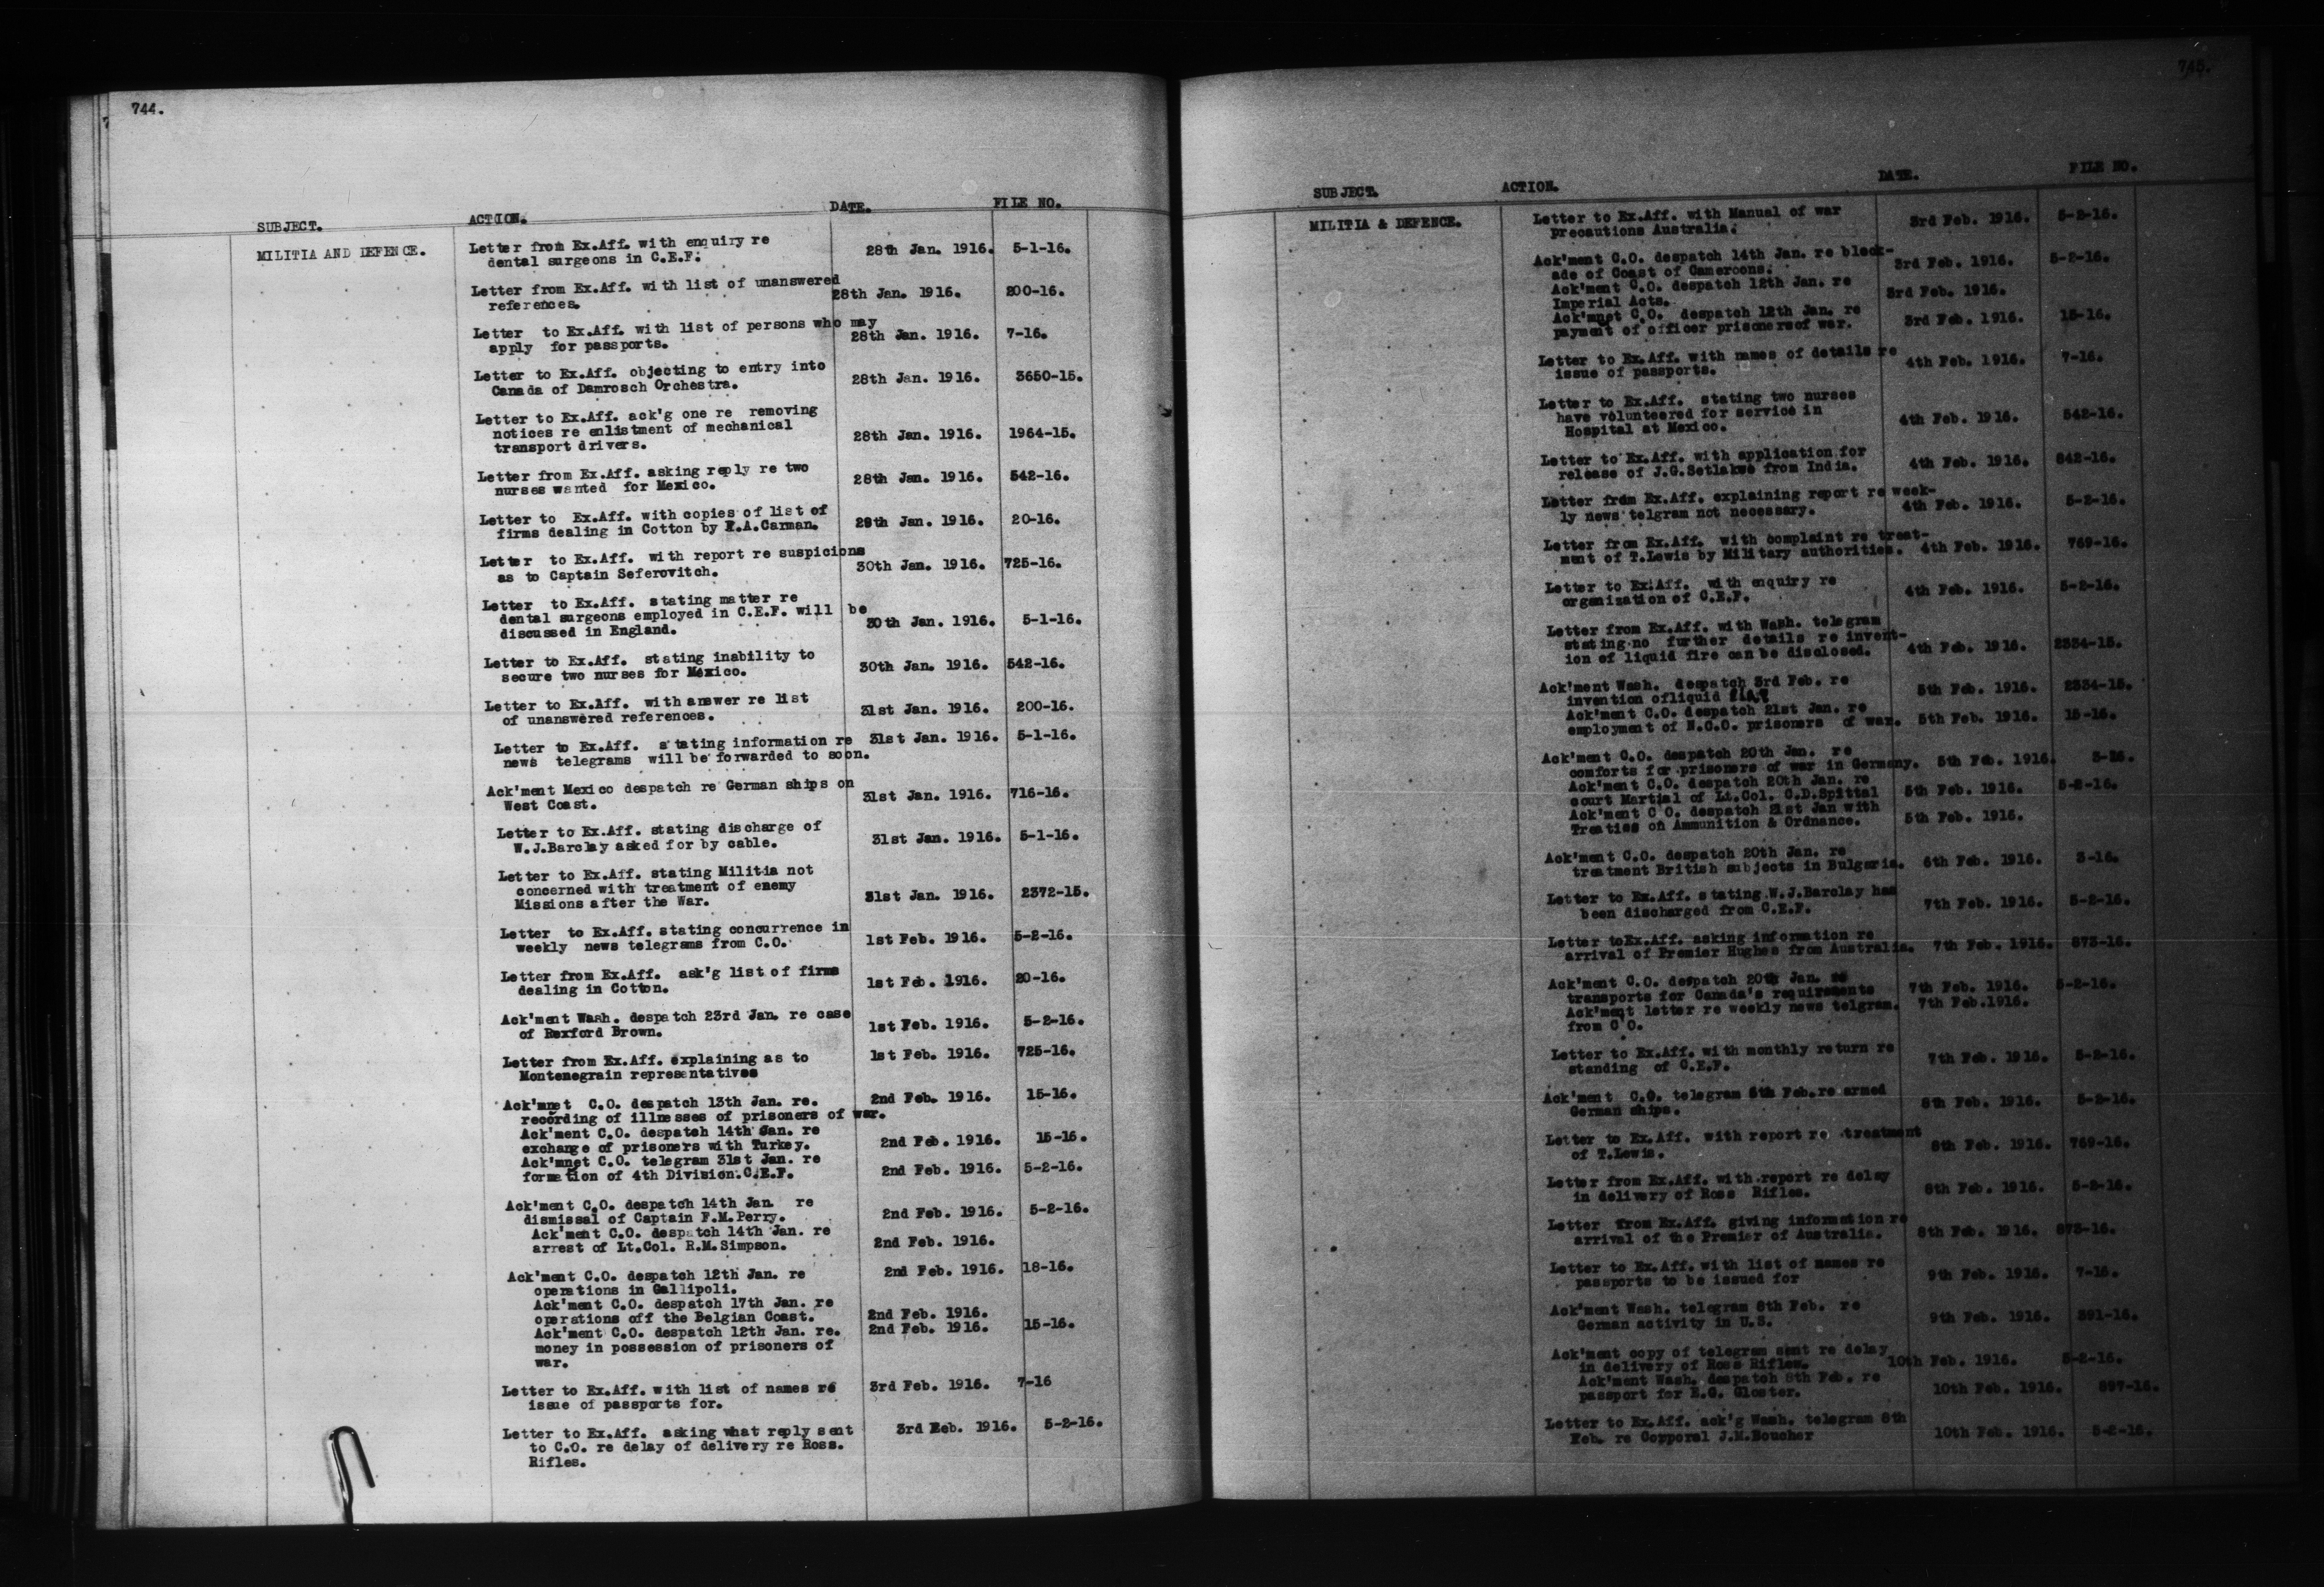 744.
SUBJECT. ACTION. DATE. FILE NO.
MILITIA AND DEFENCE. Letter from Ex.Aff. with enquiry re
dental surgeons in C.E.F. 28th Jan. 1916. 5-1-16.
Letter from Ex.Aff. with list of unanswered
references. 28th Jan. 1916. 200-16.
Letter to Ex.Aff. with list of persons who may
apply for passports. 28th Jan. 1916. 7-16.
Letter to Ex.Aff. objecting to entry into
Canada of Damrosch Orchestra. 28th Jan. 1916. 3650-15.
Letter to Ex.Aff. ack'g one re removing
notices re enlistment of mechanical
transport drivers. 28th Jan. 1916. 1964-15.
Letter from Ex.Aff. asking reply re two
nurses wanted for Mexico. 28th Jan. 1916. 542-16.
Letter to Ex.Aff. with copies of list of
firms dealing in Cotton by F.A.Carman. 29th Jan. 1916. 20-16.
Letter to Ex.Aff. with report re suspicions
as to Captain Seferovitch. 30th Jan. 1916. 725-16.
Letter to Ex.Aff. stating matter re
dental surgeons employed in C.E.F. will be
discussed in England. 30th Jan. 1916. 5-1-16.
Letter to Ex.Aff. stating inability to
secure two nurses for Mexico. 30th Jan. 1916. 542-16.
Letter to Ex.Aff. with answer re list
of unanswered references. 31st Jan. 1916. 200-16.
Letter to Ex.Aff. stating information re 31st Jan. 1916. 5-1-16.
news telegrams will be forwarded to soon.
Ack'ment Mexico despatch re German ships on
West Coast. 31st Jan. 1916. 716-16.
Letter to Ex.Aff. stating discharge of
W.J.Barclay asked for by cable. 31st Jan. 1916. 5-1-16.
Letter to Ex.Aff. stating Militia not
concerned with treatment of enemy
Missions after the War. 31st Jan. 1916. 2372-15.
Letter to Ex.Aff. stating concurrence in
weekly news telegrams from C.O. 1st Feb. 1916. 5-2-16.
Letter from Ex.Aff. ask'g list of firms
dealing in Cotton. 1st Feb. 1916. 20-16.
Ack'ment Wash. despatch 23rd Jan. re case
of Rexford Brown. 1st Feb. 1916. 5-2-16.
Letter from Ex.Aff. explaining as to 1st Feb. 1916. 725-16.
Montenegrain representatives
Ack'mnet C.O. despatch 13th Jan. re. 2nd Feb. 1916. 15-16.
recording of illnesses of prisoners of war.
Ack'ment C.O. despatch 14th Jan. re
exchange of prisoners with Turkey. 2nd Feb. 1916. 15-16.
Ack'mnet C.O. telegram 31st Jan. re
formation of 4th Division.C.E.F. 2nd Feb. 1916. 5-2-16.
Ack'ment C.O. despatch 14th Jan. re
dismissal of Captain F.M.Perry. 2nd Feb. 1916. 5-2-16.
Ack'ment C.O. despatch 14th Jan. re
arrest of Lt.Col. R.M.Simpson. 2nd Feb. 1916.
Ack'ment C.O. despatch 12th Jan. re 2nd Feb. 1916. 18-16.
operations in Gallipoli.
Ack'ment C.O. despatch 17th Jan. re
operations off the Belgian Coast. 2nd Feb. 1916.
Ack'ment C.O. despatch 12th Jan. re. 2nd Feb. 1916. 15-16.
money in possession of prisoners of
war.
Letter to Ex.Aff. with list of names re 3rd Feb. 1916. 7-16
issue of passports for.
Letter to Ex.Aff. asking what reply sent 3rd Eeb. 1916. 5-2-16.
to C.O. re delay of delivery re Ross.
Rifles.
745.
SUBJECT. ACTION. DATE. FILE NO.
MILITIA & DEFENCE. Letter to Ex.Aff. with Manual of war
precautions Australia. 3rd Feb. 1916. 5-2-16.
Ack'ment C.O. despatch 14th Jan. re block-
ade of Coast of Cameroons. 3rd Feb. 1916. 5-2-16.
Ack'ment C.O. despatch 12th Jan. re
Imperial Acts. 3rd Feb. 1916.
Ack'mnet C.O. despatch 12th Jan. re
payment of officer prisonersof war. 3rd Feb. 1916. 15-16.
Letter to Ex.Aff. with names of details re
issue of passports. 4th Feb. 1916. 7-16.
Letter to Ex.Aff. stating two nurses
have volunteered for service in
Hospital at Mexico. 4th Feb. 1916. 542-16.
Letter to Ex.Aff. with application for
release of J.G.Setlakwe from India. 4th Feb. 1916. 842-16.
Letter from Ex.Aff. explaining report re week-
ly news telgram not necessary. 4th Feb. 1916. 5-2-16.
Letter from Ex.Aff. with complaint re treat-
ment of T.Lewis by Military authorities. 4th Feb. 1916. 769-16.
Letter to Ex.Aff. with enquiry re
organization of C.E.F. 4th Feb. 1916. 5-2-16.
Letter from Ex.Aff. with Wash. telegram
stating no further details re invent-
ion of liquid fire can be disclosed. 4th Feb. 1916. 2334-15.
Ack'ment Wash. despatch 3rd Feb. re
invention ofliquid 5th Feb. 1916. 2334-15.
Ack'ment C.O. despatch 21st Jan. re
employment of N.C.O. prisoners of war. 5th Feb. 1916. 15-16.
Ack'ment C.O. despatch 20th Jan. re
comforts for prisoners of war in Germany. 5th Feb. 1916.
Ack'ment C.O. despatch 20th Jan. re
court Martial of Lt.Col. C.D.Spittal 5th Feb. 1916. 5-2-16.
Ack'ment C O. despatch 21st Jan with
Treaties on Ammunition & Ordnance. 5th Feb. 1916.
Ack'ment C.O. despatch 20th Jan. re
treatment British subjects in Bulgaria. 6th Feb. 1916. 3-16.
Letter to Ex.Aff. stating W.J.Barclay has
been discharged from C.E.F. 7th Feb. 1916. 5-2-16.
Letter toEx.Aff. asking information re
arrival of Premier Hughes from Australia. 7th Feb. 1916. 873-16.
Ack'ment C.O. despatch 20th Jan. re
transports for Canada's requirements 7th Feb. 1916. 5-2-16.
Ack'ment letter re weekly news telgram. 7th Feb.1916.
from C O.
Letter to Ex.Aff. with monthly return re
standing of C.E.F. 7th Feb. 1916. 5-2-16.
Ack'ment C.O. telegram Feb.re armed
German ships. 8th Feb. 1916. 5-2-16.
Letter to Ex.Aff. with report re treatment
of T.Lewis. 8th Feb. 1916. 769-16.
Letter from Ex.Aff. with report re delay
in delivery of Ross Rifles. 8th Feb. 1916. 5-2-16.
Letter from Ex.Aff. giving information re
arrival of the Premier of Australia. 8th Feb. 1916. 873-16.
Letter to Ex.Aff. with list of names re
passports to be issued for 9th Feb. 1916. 7-16.
Ack'ment Wash. telegram 8th Feb. re
German activity in U.S. 9th Feb. 1916. 391-16.
Ack'ment copy of telegram sent re delay
in delivery of Ross Rifles. 10th Feb. 1916. 5-2-16.
Ack'ment Wash. despatch 8th Feb. re
passport for E.G. Gloster. 10th Feb. 1916. 897-16.
Letter to Ex.Aff. ack'g Wash. telegram 8th
Feb. re Copporal J.M.Boucher 10th Feb. 1916. 5-2-16.